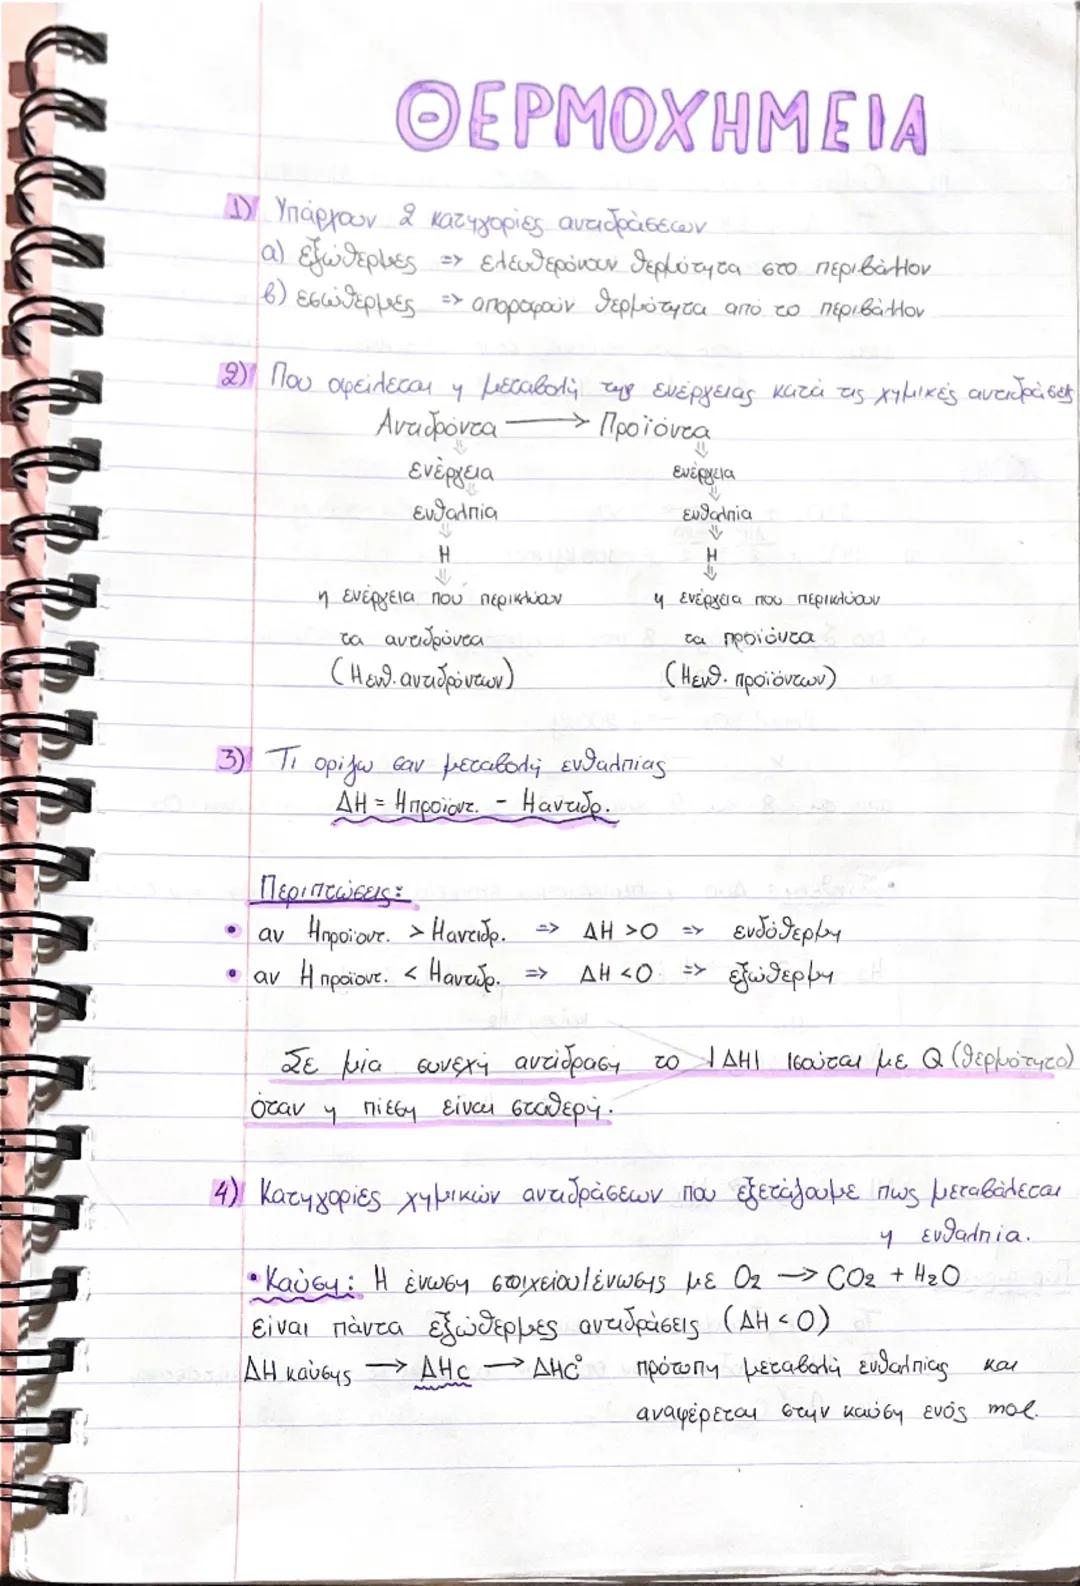 ΘΕΡΜΟΧΗΜΕΙΑ
1) Υπάρχουν 2 κατηγορίες αντιδράσεων
α) εξώθερμες => ελευθερόνουν θερμότητα στο περιβάλλον
β) εσώθερμες => απορροφούν θερμότητα από το περιβάλλον
2) Που οφείλεται η μεταβολή της ενέργειας κατά τις χημικές αντιδράσεις
Αντιδρόντα → Προϊόντα
⇓ ⇓
ενέργεια ενέργεια
⇓ ⇓
ενθαλπία ενθαλπία
⇓ ⇓
Η Η
⇓ ⇓
η ενέργεια που περικλύουν η ενέργεια που περικλύουν
τα αντιδρόντα τα προϊόντα
(Ηενθ. αντιδρόντων) (Ηενθ. προϊόντων)
3) Τι ορίζω σαν μεταβολή ενθαλπίας
ΔΗ = Ηπροϊοντ. - Ηαντιδρ.
Περιπτώσεις:
• αν Ηπροϊοντ. > Ηαντιδρ. => ΔΗ >0 => ενδόθερμη
• αν Ηπροϊοντ. < Ηαντιδρ. => ΔΗ <0 => εξώθερμη
Σε μία συνεχή αντίδραση το |ΔΗ| ισούται με Q (θερμότητα)
όταν η πίεση είναι σταθερή.
4) Κατηγορίες χημικών αντιδράσεων που εξετάζουμε πως μεταβάλεται
η ενθαλπία.
• Καύση: Η ένωση στοιχείου/ένωσης με O2 → CO2 + H2O
είναι πάντα εξώθερμες αντιδράσεις (ΔΗ <0)
ΔΗ καύσης → ΔΗc → ΔΗc° πρότυπη μεταβολή ενθαλπίας και
αναφέρεται στην καύση ενός mol.